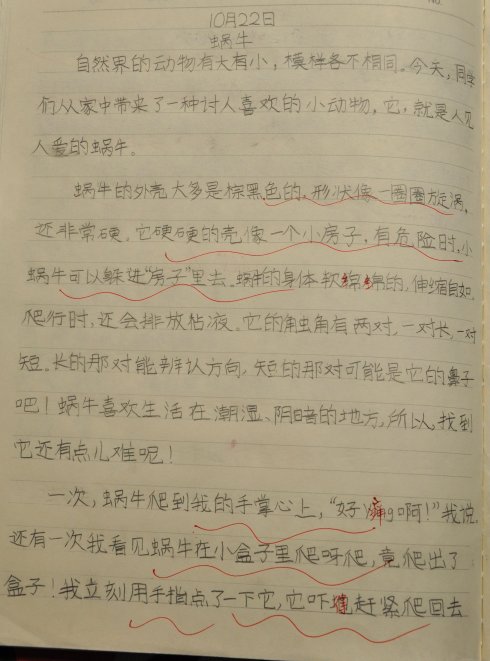 No.
10月22日
蜗牛
自然界的动物有大有小，模样各不相同。今天，同学
们从家中带来了一种讨人喜欢的小动物，它，就是人见
人爱的蜗牛。
蜗牛的外壳大多是棕黑色的，形状像一圈圈旋涡，
还非常硬。它硬硬的壳像一个小房子，有危险时，小
蜗牛可以躲进“房子”里去。蜗牛的身体软绵绵的，伸缩自如
爬行时，还会排放粘液。它的触角有两对，一对长，一对
短。长的那对能辨认方向，短的那对可能是它的鼻子
吧！蜗牛喜欢生活在潮湿、阴暗的地方，所以，找到
它还有点儿难呢！
一次，蜗牛爬到我的手掌心上，“好啊！”我说
还有一次我看见蜗牛在小盒子里爬呀爬，竟爬出了
盒子！我立刻用手指点了一下它，它吓赶紧爬回去